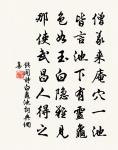 僧義來庵穴一池
皆言池下有靈龜
色如玉白隱難見
那使武昌人得之
錢聞詩白龜池詞典網
集